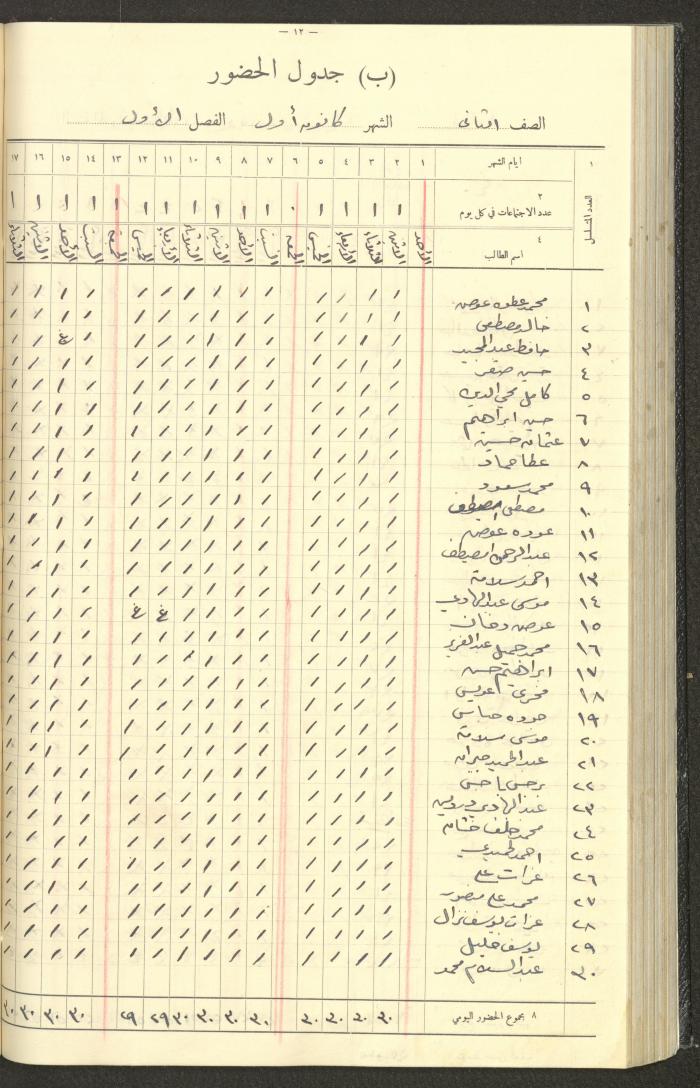 — ١٢ —
(ب) جدول الحضور
الصف الثاني الشهر كانون أول الفصل الأول
١ ايام الشهر ١ ٢ ٣ ٤ ٥ ٦ ٧ ٨ ٩ ١٠ ١١ ١٢ ١٣ ١٤ ١٥ ١٦ ١٧
العدد المتسلسل
٢
عدد الاجتماعات في كل يوم ١ ١ ١ ١ ٠ ١ ١ ١ ١ ١ ١ ١ ١ ١ ١ ١
٤
اسم الطالب الأحد الاثنين الثلاثاء الأربعاء الخميس الجمعة السبت الأحد الاثنين الثلاثاء الأربعاء الخميس الجمعة السبت الأحد الاثنين الثلاثاء
١ محمد عطوه عوض / / / / / / / / / / / / / /
٢ خالد مصطفى / / / / / / / / / / / / / /
٣ حافظ عبد المجيد / / / / / / / / / / / غ / /
٤ حسين صقر / / / / / / / / / / / / / /
٥ كامل محي الدين / / / / / / / / / / / / / /
٦ حسن ابراهيم / / / / / / / / / / / / / /
٧ عثمان حسين / / / / / / / / / / / / / /
٨ عطا حماد / / / / / / / / / / / / / /
٩ محمد سعود / / / / / / / / / / / / / /
١٠ مصطفى / / / / / / / / / / / / / /
١١ عوده عوض / / / / / / / / / / / / / /
١٢ عبد الرحمن / / / / / / / / / / / / / /
١٣ احمد سلامة / / / / / / / / / / / / / /
١٤ موسى عبد الهادي / / / / / / / / غ غ / / / /
١٥ عوض / / / / / / / / / / / / / /
١٦ محمد جميل عبد العزيز / / / / / / / / / / / / / /
١٧ ابراهيم حسن / / / / / / / / / / / / / /
١٨ فخري عويس / / / / / / / / / / / / / /
١٩ حوده عباس / / / / / / / / / / / / / /
٢٠ موسى سلامة / / / / / / / / / / / / / /
٢١ عبد الحميد جبران / / / / / / / / / / / / / /
٢٢ / / / / / / / / / / / / / /
٢٣ عبد الهادي درويش / / / / / / / / / / / / / /
٢٤ محمد خلف / / / / / / / / / / / / / /
٢٥ احمد / / / / / / / / / / / / / /
٢٦ عزات علي / / / / / / / / / / / / / /
٢٧ محمد علي منصور / / / / / / / / / / / / / /
٢٨ عزات يوسف نزال / / / / / / / / / / / / / /
٢٩ يوسف خليل / / / / / / / / / / / / / /
٣٠ عبد السلام محمد
٨ مجموع الحضور اليومي ٣٠ ٣٠ ٣٠ ٣٠ ٣٠ ٣٠ ٣٠ ٣٠ ٢٩ ٢٩ ٣٠ ٣٠ ٣٠ ٣٠